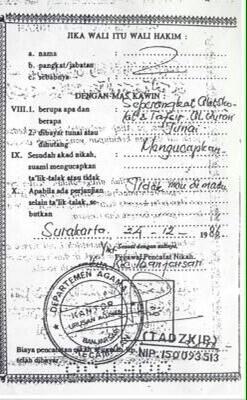 JIKA WALI ITU WALI HAKIM :
a. nama
b. pangkat/jabatan
c. sebabnya
DENGAN MAS KAWIN :
VIII.1. berupa apa dan Seperangkat Alat sho-
berapa lat & Tafsir Al.
2. dibayar tunai atau Tunai
dihutang
IX. Sesudah akad nikah, Mengucapkan
suami mengucapkan
ta'lik-talak atau tidak
X. Apabila ada perjanjian Tidak mau di madu
selain ta'lik-talak, se-
butkan
Surakarta, 24 - 12 - 198
Sesuai dengan aslinya
Pegawai Pencatat Nikah.
DEPARTEMEN AGAMA
KANTOR
URUSAN AGAMA
BANJARSARI
KECAMATAN
(TADZKIR)
NIP. 150093513
Biaya pencatatan nikah
telah dibayar.